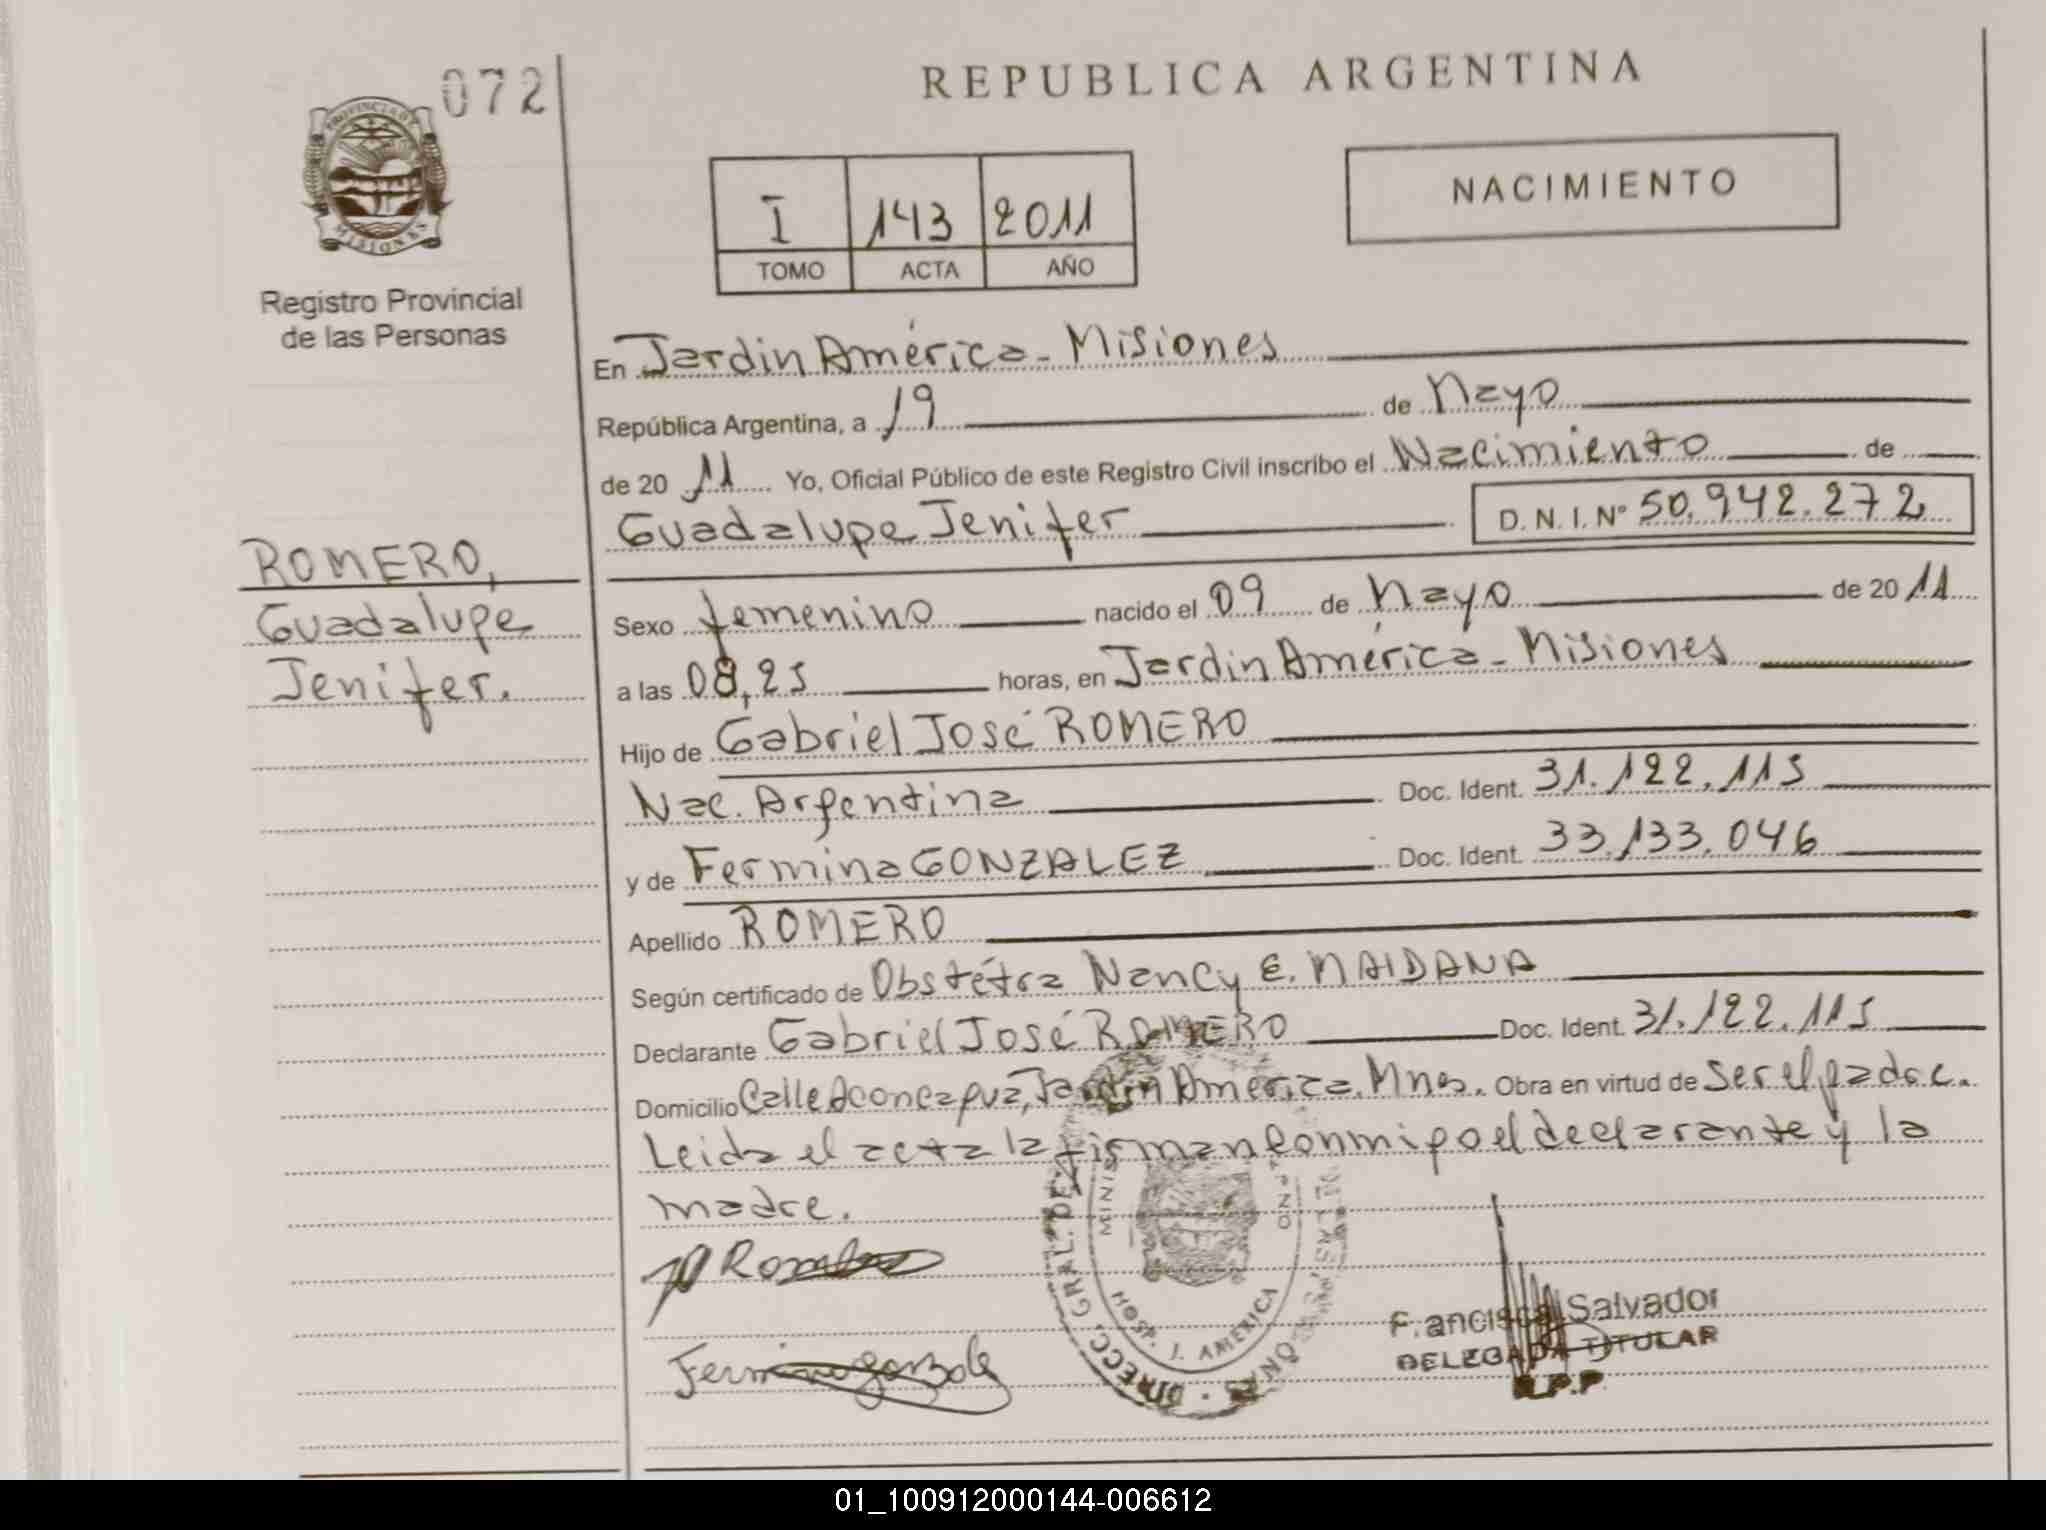 072
REPUBLICA ARGENTINA
PROVINCIA DE
MISIONES
Registro Provincial
de las Personas
I 143 2011
TOMO ACTA AÑO
NACIMIENTO
En Jardin América - Misiones
República Argentina, a 19 de Mayo
de 20 11 Yo, Oficial Público de este Registro Civil inscribo el Nacimiento de
Guadalupe Jenifer D. N. I. Nº 50.942.272
ROMERO,
Guadalupe
Jenifer.
Sexo femenino nacido el 09 de Mayo de 20 11
a las 08,25 horas, en Jardin América - Misiones
Hijo de Gabriel José ROMERO
Nac. Argentina Doc. Ident. 31.122.115
y de Fermina GONZALEZ Doc. Ident. 33.133.046
Apellido ROMERO
Según certificado de Obstétra Nancy E. MAIDANA
Declarante Gabriel José ROMERO Doc. Ident. 31.122.115
Domicilio Calle Aconcagua, Jardin América. Mnes. Obra en virtud de ser el padre.
Leida el acta la firman conmigo el declarante y la
madre.
Romero
Fermina gonzalez
DIRECC. GRAL. DE
MINIS
HOSP. J. AMERICA
Francisca Salvador
DELEGADA TITULAR
R.P.P.
01_100912000144-006612